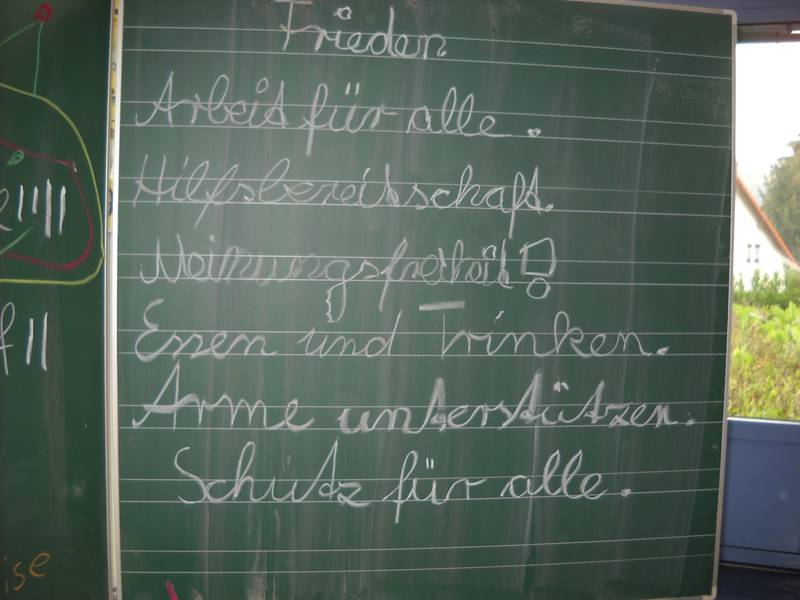 Frieden
Arbeit für alle.
Hilfsbereitsschaft.
Meinungsfreiheit!
Essen und Trinken.
Arme unterstützen.
Schutz für alle.
ise